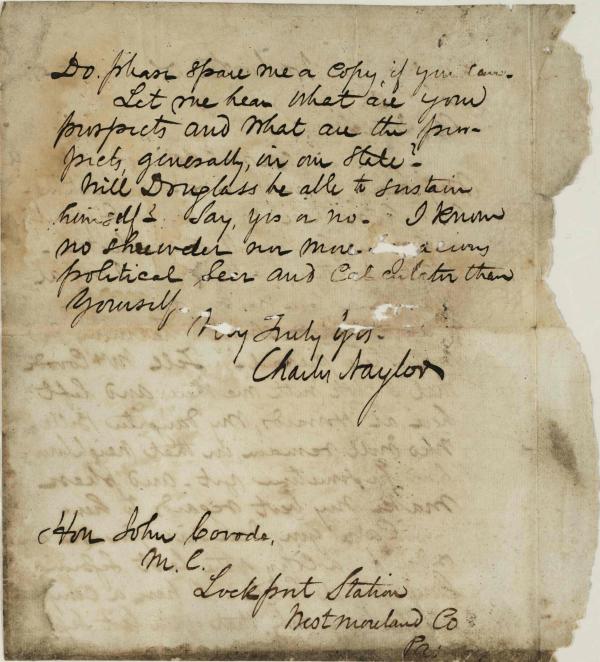 Do. please spare me a copy, if you can.
Let me hear what are your
prospects and what are the pros-
pects, generally, in our State?
Will Douglass be able to sustain
himself? Say, yes or no. I know
no shrewder nor more
political Seer and Calculator than
Yourself.
Very Truly Yrs.
Charles Naylor
Hon John Covode,
M. C.
Lockport Station
Westmoreland Co
Pa.